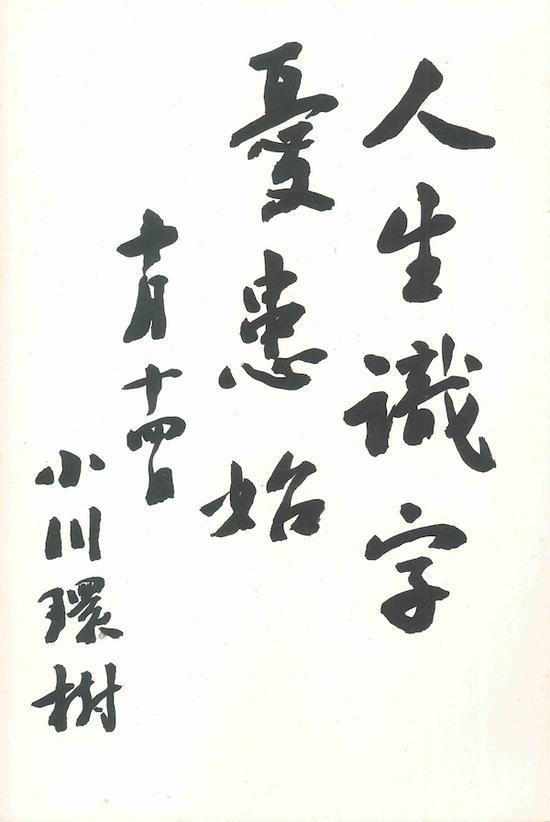 人生識字
憂患始
十月十四日
小川環樹